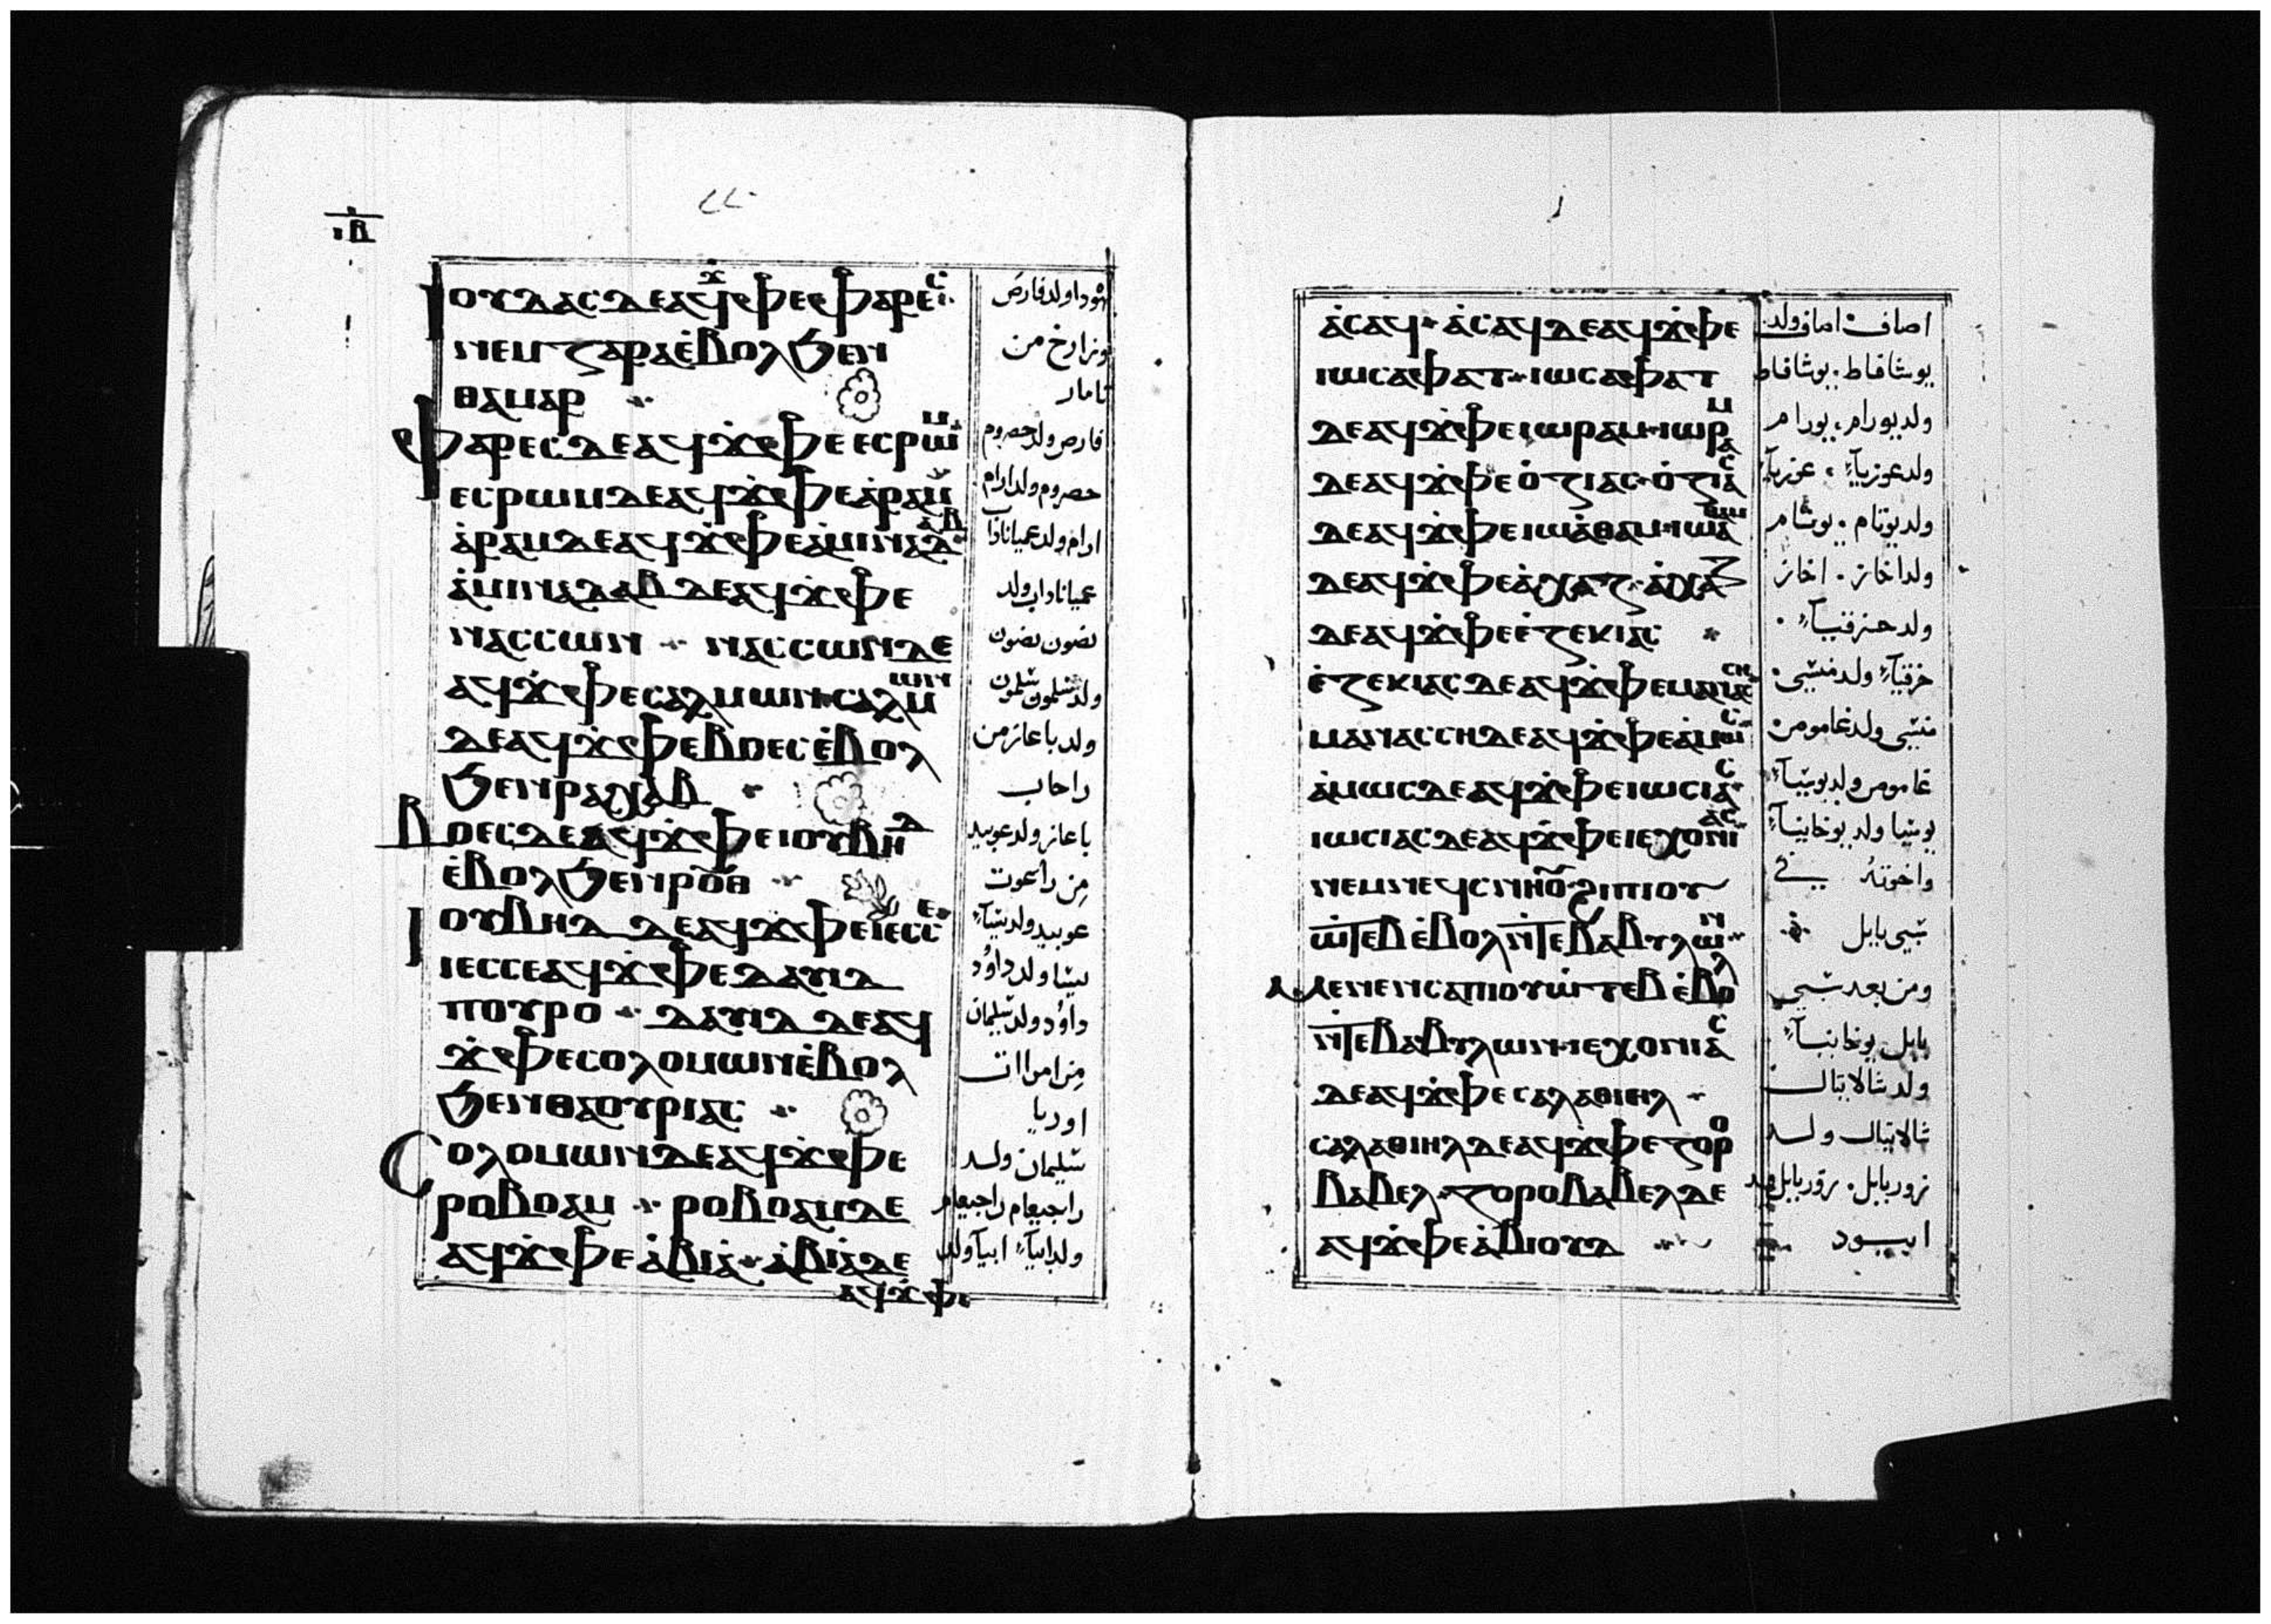 ⲓⲃ
ⲓⲟⲩⲇⲁⲥ ⲇⲉ ⲁϥϫⲫⲉ ⲫⲁⲣⲉⲥ
ⲛⲉⲙ ⲍⲁⲣⲁ ⲉ̇ⲃⲟⲗ ϧⲉⲛ
ⲑⲁⲙⲁⲣ
ⲫⲁⲣⲉⲥ ⲇⲉ ⲁϥϫⲫⲉ ⲉⲥⲣⲱⲙ
ⲉⲥⲣⲱⲙ ⲇⲉ ⲁϥϫⲫⲉ ⲁ̇ⲣⲁⲙ
ⲁ̇ⲣⲁⲙ ⲇⲉ ⲁϥϫⲫⲉ ⲁ̇ⲙⲓⲛⲁⲇⲁⲃ
ⲁ̇ⲙⲓⲛⲁⲇⲁⲃ ⲇⲉ ⲁϥϫⲫⲉ
ⲛⲁⲥⲥⲱⲛ ⲛⲁⲥⲥⲱⲛ ⲇⲉ
ⲁϥϫⲫⲉ ⲥⲁⲗⲙⲱⲛ ⲥⲁⲗⲙⲱⲛ
ⲇⲉ ⲁϥϫⲫⲉ ⲃⲟⲉⲥ ⲉ̇ⲃⲟⲗ
ϧⲉⲛ ⲣⲁⲭⲁⲃ
ⲃⲟⲉⲥ ⲇⲉ ⲁϥϫⲫⲉ ⲓⲟⲩⲃⲏⲇ
ⲉ̇ⲃⲟⲗ ϧⲉⲛ ⲣⲟⲩⲑ
ⲓⲟⲩⲃⲏⲇ ⲇⲉ ⲁϥϫⲫⲉ ⲓⲉⲥⲥⲉ
ⲓⲉⲥⲥⲉ ⲁϥϫⲫⲉ ⲇⲁⲩⲓⲇ
ⲡⲟⲩⲣⲟ ⲇⲁⲩⲓⲇ ⲇⲉ ⲁϥ
ϫⲫⲉ ⲥⲟⲗⲟⲙⲱⲛ ⲉ̇ⲃⲟⲗ
ϧⲉⲛ ⲑⲁ ⲟⲩⲣⲓⲁⲥ
ⲥⲟⲗⲟⲙⲱⲛ ⲇⲉ ⲁϥϫⲫⲉ
ⲣⲟⲃⲟⲁⲙ ⲣⲟⲃⲟⲁⲙ ⲇⲉ
ⲁϥϫⲫⲉ ⲁ̇ⲃⲓⲁ̇ ⲁ̇ⲃⲓⲁ̇ ⲇⲉ
ⲁϥϫⲫⲉ
يهودا ولد فارص
وزارخ من
تامار
فارص ولد حصروم
حصروم ولد ارام
ارام ولد عمياناداب
عمياناداب ولد
نصون نصون
ولد شلمون شلمون
ولد باعاز من
راحاب
باعاز ولد عوبيد
من راعوت
عوبيد ولد يشآء
يشا ولد داوُد
داوُد ولد سليمان
من امراة
اوريا
سليمان ولد
راجبعام راجبعام
ولد ابيآء ابيآ ولد
ⲁ̇ⲥⲁϥ ⲁ̇ⲥⲁϥ ⲇⲉ ⲁϥϫⲫⲉ
ⲓⲱⲥⲁⲫⲁⲧ ⲓⲱⲥⲁⲫⲁⲧ
ⲇⲉ ⲁϥϫⲫⲉ ⲓⲱⲣⲁⲙ ⲓⲱⲣⲁⲙ
ⲇⲉ ⲁϥϫⲫⲉ ⲟ̇ⲍⲓⲁⲥ ⲟ̇ⲍⲓⲁⲥ
ⲇⲉ ⲁϥϫⲫⲉ ⲓⲱⲁ̇ⲑⲁⲙ ⲓⲱⲁⲑⲁⲙ
ⲇⲉ ⲁϥϫⲫⲉ ⲁ̇ⲭⲁⲍ ⲁ̇ⲭⲁⲍ
ⲇⲉ ⲁϥϫⲫⲉ ⲉ̇ⲍⲉⲕⲓⲁⲥ
ⲉ̇ⲍⲉⲕⲓⲁⲥ ⲇⲉ ⲁϥϫⲫⲉ ⲙⲁⲛⲁⲥⲥⲏ
ⲙⲁⲛⲁⲥⲥⲏ ⲇⲉ ⲁϥϫⲫⲉ ⲁ̇ⲙⲱⲥ
ⲁ̇ⲙⲱⲥ ⲇⲉ ⲁϥϫⲫⲉ ⲓⲱⲥⲓⲁⲥ
ⲓⲱⲥⲓⲁⲥ ⲇⲉ ⲁϥϫⲫⲉ ⲓⲉⲭⲟⲛⲓⲁⲥ
ⲛⲉⲙ ⲛⲉϥⲥⲛⲏⲟⲩ ϩⲓ ⲡⲓⲟⲩ
ⲱ̇ⲧⲉⲃ ⲉ̇ⲃⲟⲗ ⲛ̇ⲧⲉ ⲃⲁⲃⲩⲗⲱⲛ
ⲙⲉⲛⲉⲛⲥⲁ ⲡⲓⲟⲩⲱ̇ⲧⲉⲃ ⲉ̇ⲃⲟⲗ
ⲛ̇ⲧⲉ ⲃⲁⲃⲩⲗⲱⲛ ⲓⲉⲭⲟⲛⲓⲁⲥ
ⲇⲉ ⲁϥϫⲫⲉ ⲥⲁⲗⲁⲑⲓⲏⲗ
ⲥⲁⲗⲁⲑⲓⲏⲗ ⲇⲉ ⲁϥϫⲫⲉ ⲍⲟⲣⲟ
ⲃⲁⲃⲉⲗ ⲍⲟⲣⲟⲃⲁⲃⲉⲗ ⲇⲉ
ⲁϥϫⲫⲉ ⲁ̇ⲃⲓⲟⲩⲇ
اصاف اصاف ولد
يوشافاط يوشافاط
ولد يورام يورام
ولد عوزيآء عوزيآء
ولد يوتام يوثام
ولد اخاز اخاز
ولد حزقيآء
حزقيآء ولد منشى
منشى ولد عاموص
عاموص ولد يوشيآء
يوشيا ولد يوخانيآء
واخوته في
سبي بابل
ومن بعد سبي
بابل يوخانيآء
ولد شالاتيال
شالاتيال ولد
زوربابل زوربابل ولد
ابيود